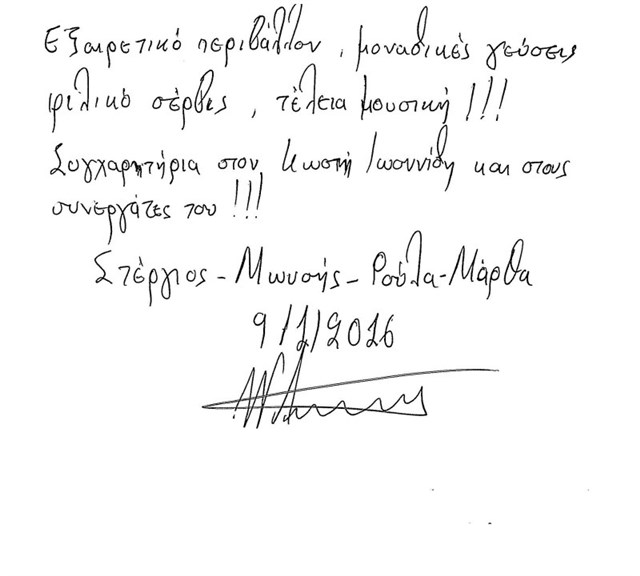 Εξαιρετικό περιβάλλον, μοναδικές γεύσεις
φιλικό σέρβις, τέλεια μουσική!!!
Συγχαρητήρια στον Κωστή Ιωαννίδη και στους
συνεργάτες του!!!
Στέργιος - Μωυσής - Ρούλα - Μάρθα
9/1/2016